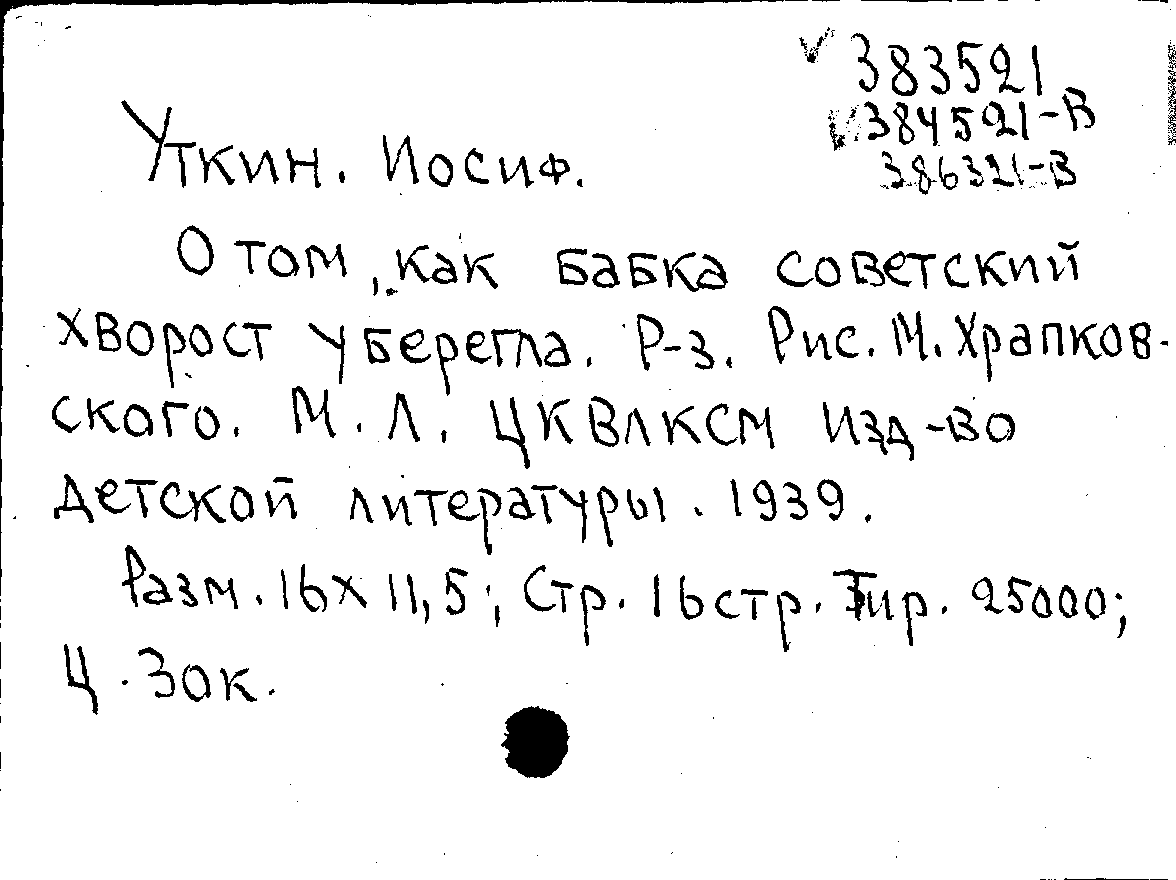 383521
384521-В
386321-В
Уткин. Иосиф.
О том, как бабка советский
хворост уберегла. Р-з. Рис. М. Храпков-
ского. М. Л. ЦКВЛКСМ Изд-во
детской литературы. 1939.
Разм. 16х11,5; Стр. 16стр. Тир. 25000;
Ц. 30к.